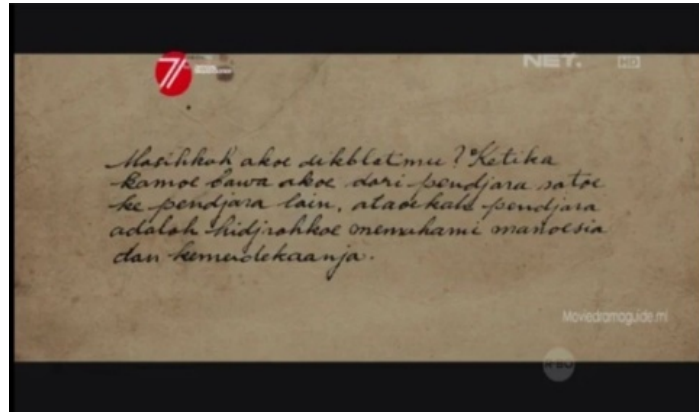 71
NET.
HD
Masihkah akoe dikbletmu? Ketika
kamoe bawa akoe dari pendjara satoe
ke pendjara lain, ataoekah pendjara
adalah hidjrahkoe memahami manoesia
dan kemerdekaanja.
Moviedramaguide.ml